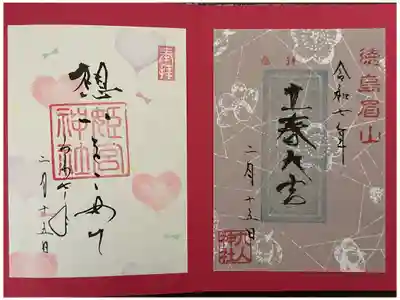 徳島眉山
令和七年
奉拝
立春大吉
二月十五日
奉拝
想いをこめて
姫宮
神社
令和七年
二月十五日